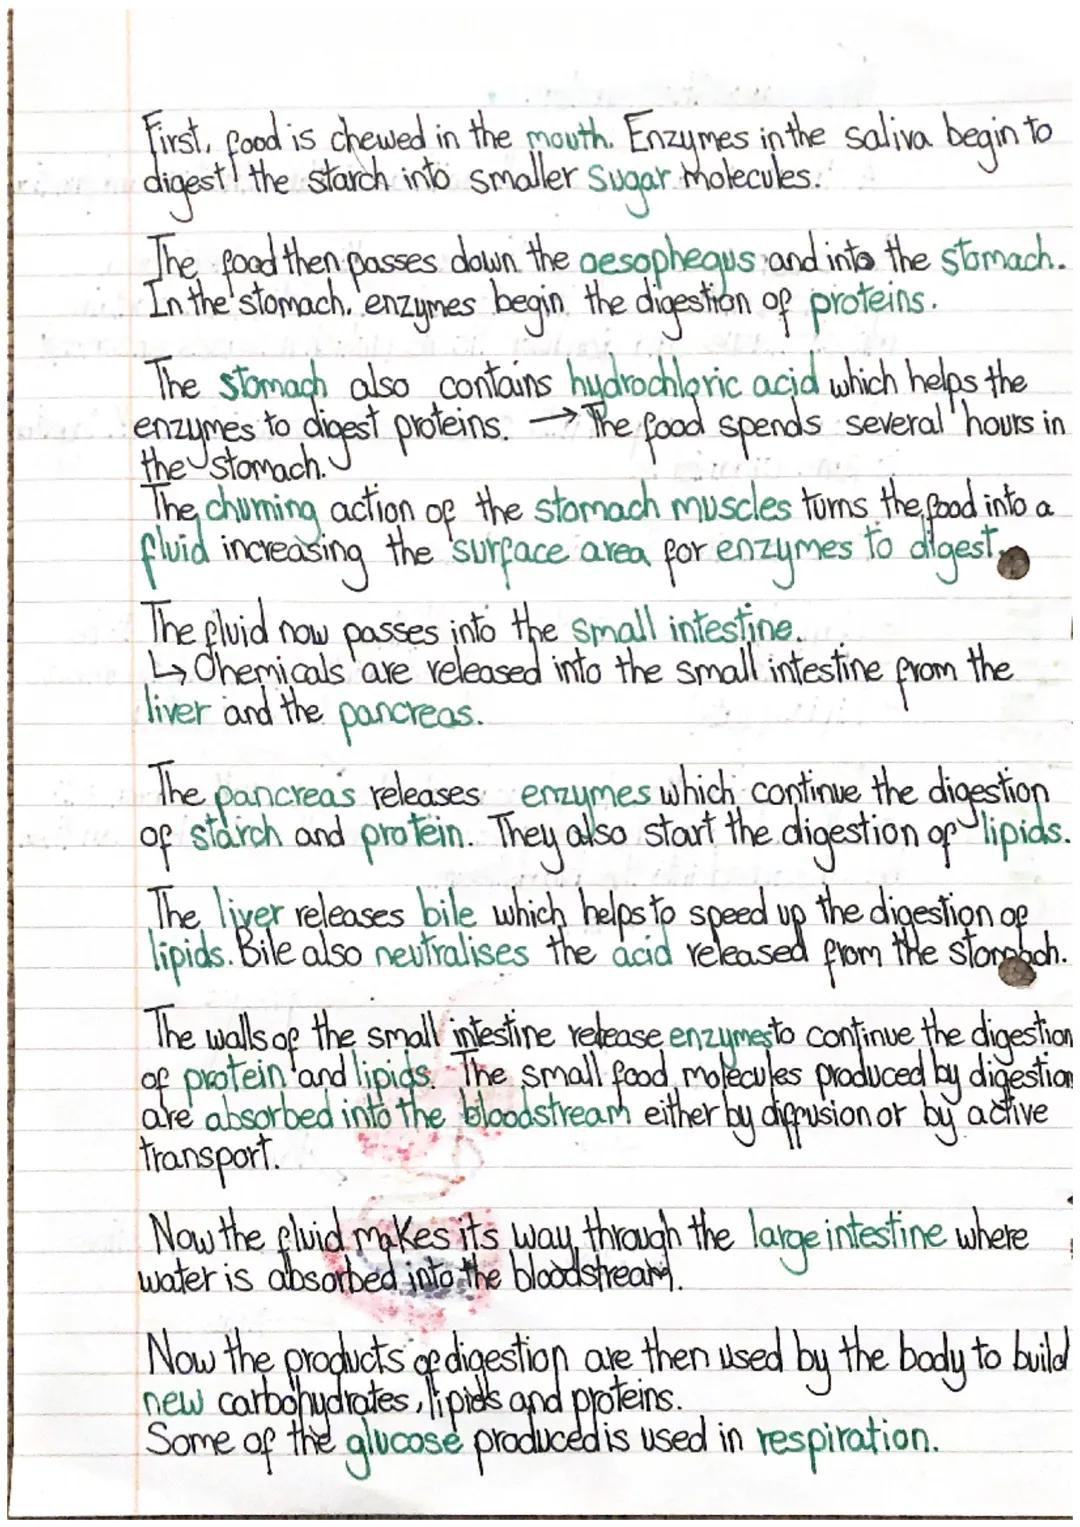 First, food is chewed in the mouth. Enzymes in the saliva begin to
digest the starch into smaller sugar molecules.
The food then passes down the oesophegus and into the stomach.
In the stomach, enzymes begin the digestion of proteins.
The stomach also contains hydrochloric acid which helps the
enzymes to digest proteins. → The food spends several hours in
the stomach.
The churning action of the stomach muscles turns the food into a
fluid increasing the surface area for enzymes to digest.
The fluid now passes into the small intestine.
↳ Chemicals are released into the small intestine from the
liver and the pancreas.
The pancreas releases enzymes which continue the digestion
of starch and protein. They also start the digestion of lipids.
The liver releases bile which helps to speed up the digestion of
lipids. Bile also neutralises the acid released from the stomach.
The walls of the small intestine release enzymes to continue the digestion
of protein and lipids. The small food molecules produced by digestion
are absorbed into the bloodstream either by diffusion or by active
transport.
Now the fluid makes its way through the large intestine where
water is absorbed into the bloodstream.
Now the products of digestion are then used by the body to build
new carbohydrates, lipids and proteins.
Some of the glucose produced is used in respiration.